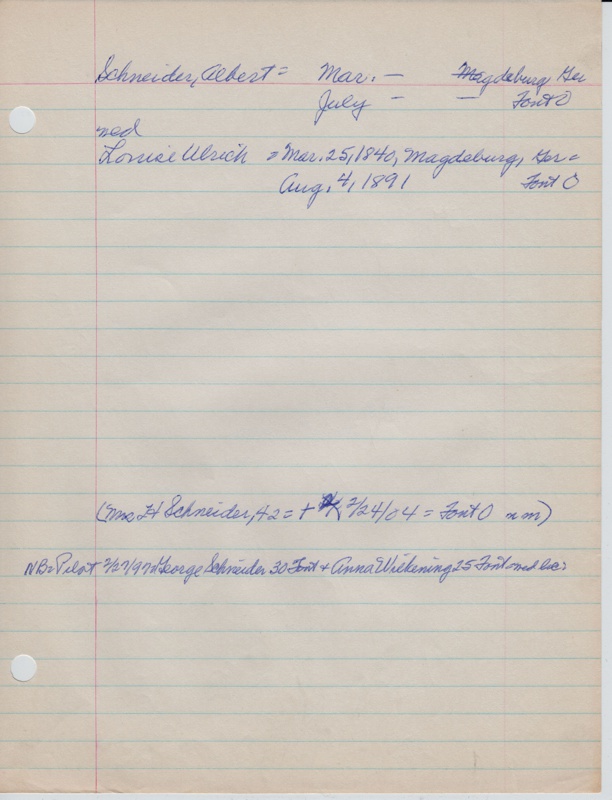 Schneider, Albert = Mar. — Magdeburg, Ger
July — — Font O
med
Louise Ulrich = Mar. 25, 1840, Magdeburg, Ger =
Aug. 4, 1891 Font O
(Mrs H Schneider, 42 = + 2/24/04 = Font O n m)
NB = Pilot 2/27/97 = George Schneider 30 Font + Anna Wilkening 25 Font = med lic =